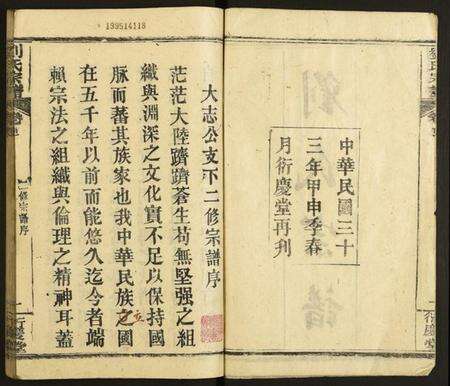 199514118
中華民國三十
三年甲申季春
月衍慶堂再刋
大志公支下二修宗譜序
茫茫大陸躋躋蒼生苟無堅强之組
織與淵深之文化實不足以保持國
脉而蕃其族家也我中華民族立國
在五千年以前而能悠久迄今者端
賴宗法之組織與倫理之精神耳蓋
劉氏宗譜
二修宗譜序
衍慶堂